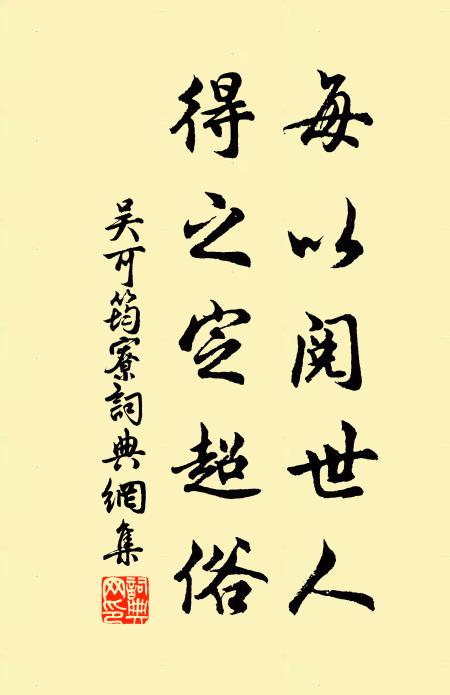 每以阅世人
得之定超俗
吴可筠寮詞典網集
詞典网印